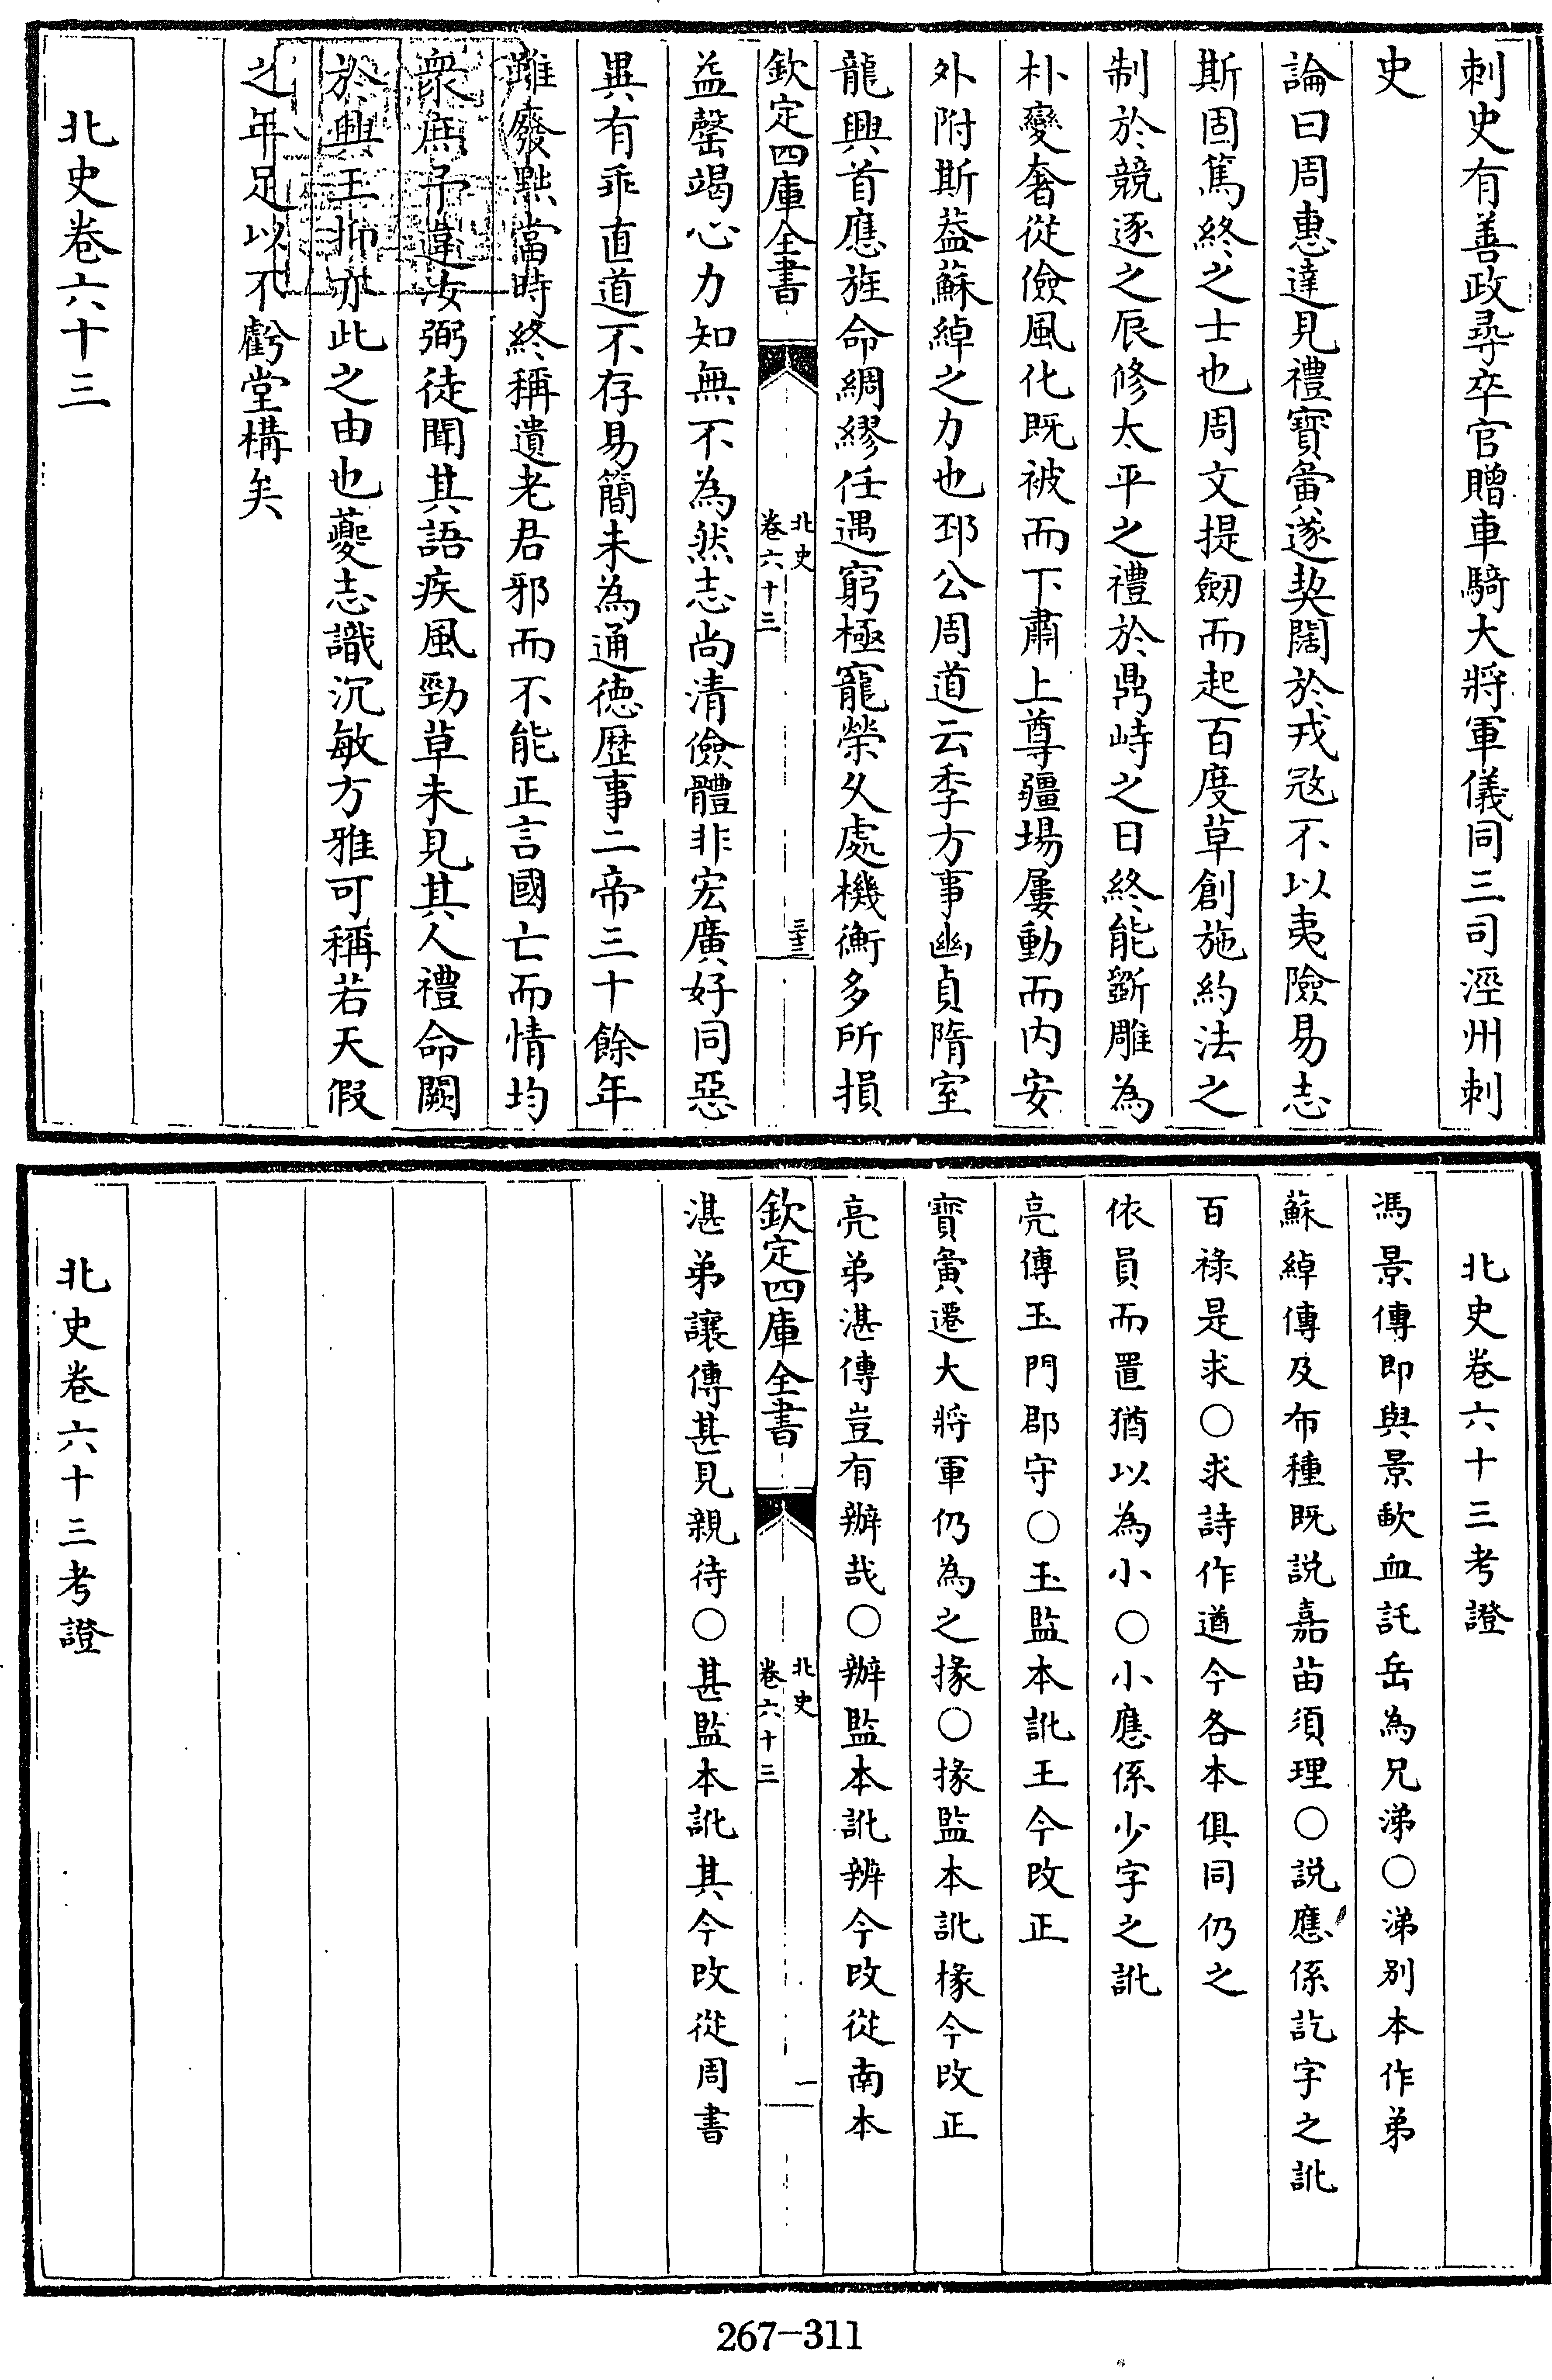 刺史有善政尋卒官贈車騎大將軍儀同三司涇州刺
史
論曰周惠達見禮寶夤遂契闊於戎寇不以夷險易志
斯固篤終之士也周文提劒而起百度草創施約法之
制於競逐之辰修太平之禮於鼎峙之日終能斵雕為
朴變奢從儉風化既被而下肅上尊疆場屢動而内安
外附斯葢蘇綽之力也邳公周道云季方事幽貞隋室
龍興首應旌命綢繆任遇窮極寵榮乆處機衡多所損
欽定四庫全書
北史
卷六十三
三十三
益罄竭心力知無不為然志尚清儉體非宏廣好同惡
異有乖直道不存易簡未為通徳歴事二帝三十餘年
雖廢黜當時終稱遺老君邪而不能正言國亡而情均
衆庶予違汝弼徒聞其語疾風勁草未見其人禮命闕
於興王抑亦此之由也夔志識沉敏方雅可稱若天假
之年足以不虧堂構矣
北史卷六十三
北史卷六十三考證
馮景傳即與景歃血託岳為兄涕○涕别本作弟
蘇綽傳及布種既説嘉苗須理○説應係訖字之訛
百祿是求○求詩作遒今各本俱同仍之
依員而置猶以為小○小應係少字之訛
亮傳玉門郡守○玉監本訛王今改正
寶夤遷大將軍仍為之掾○掾監本訛椽今改正
亮弟湛傳豈有辦哉○辦監本訛辨今改從南本
欽定四庫全書
北史
卷六十三
一
湛弟讓傳甚見親待○甚監本訛其今改從周書
北史卷六十三考證
267-311